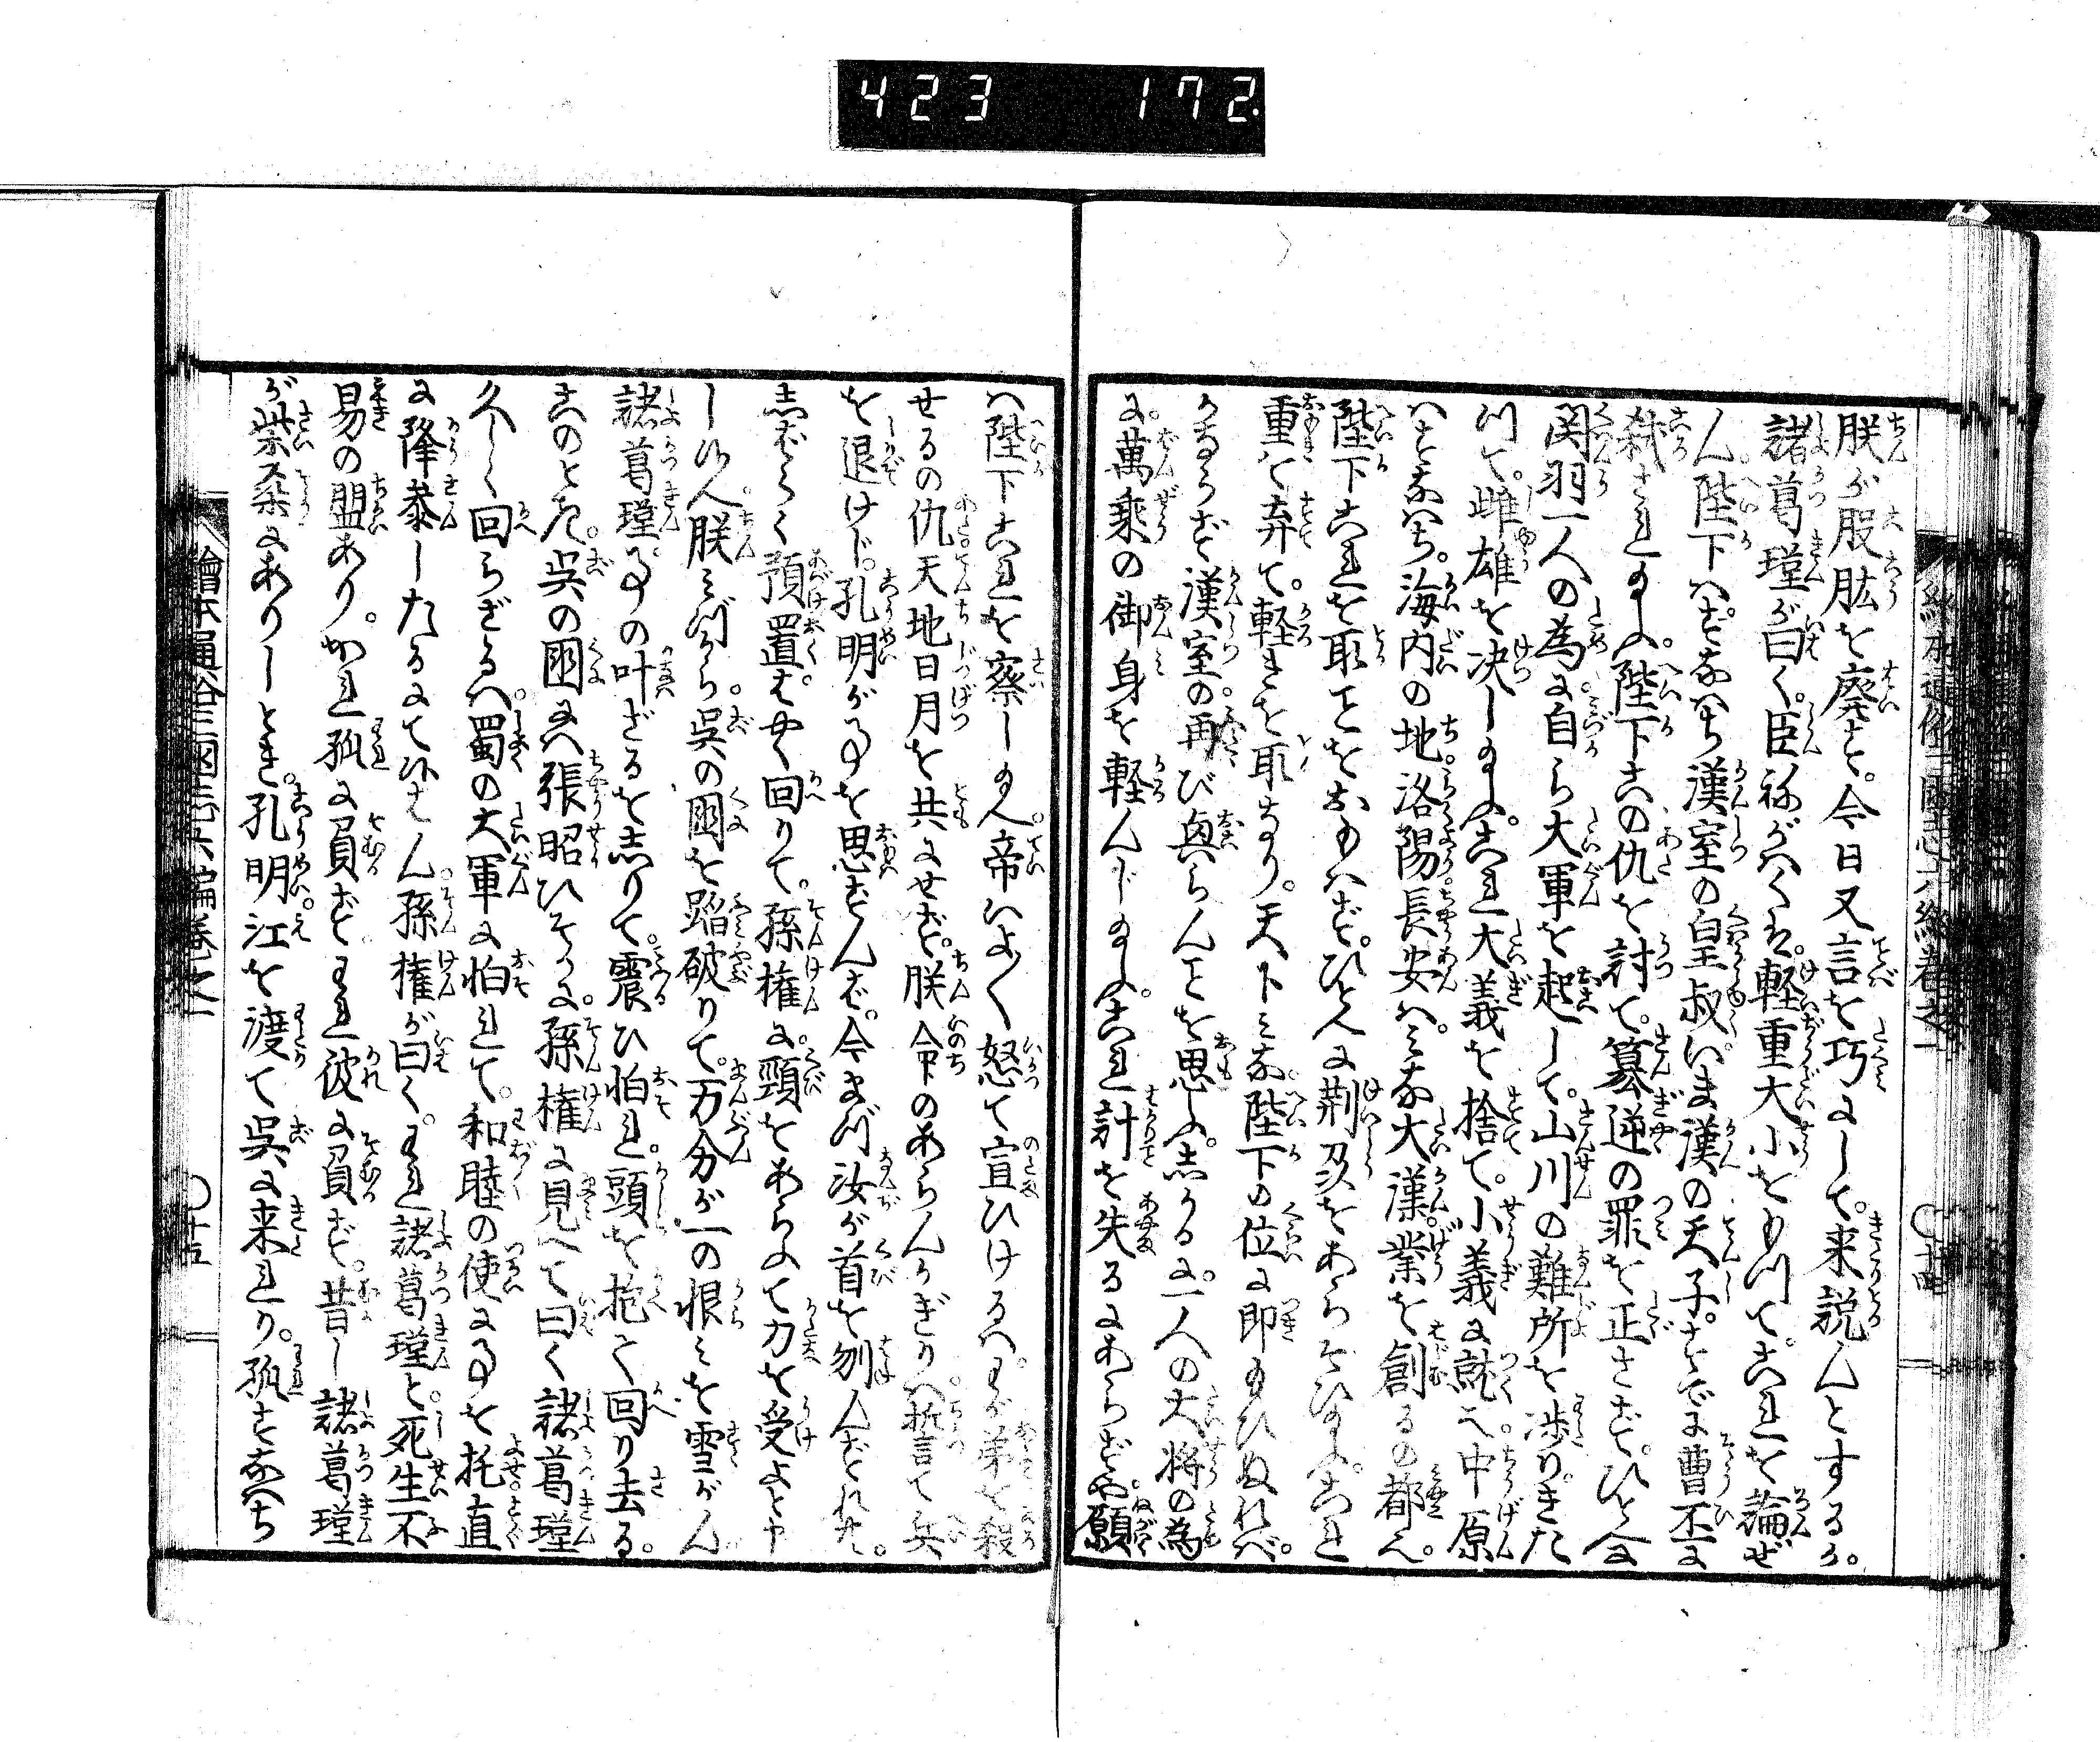 423 172
朕が股肱を廃す。今日又言を巧にして。来説んとするか。
諸葛瑾が曰く。臣ねがハくハ。軽重大小をもつて。これを論ぜ
ん陛下ハすなハち漢室の皇叔いま漢の天子。すでに曹丕に
弑され給ふ。陛下この仇を討て。簒逆の罪を正さず。ひとへに
関羽一人の為に。自ら大軍を起して。山川の難所を渉り。きた
つて。雌雄を决し給ふ。これ大義を捨て。小義に就く也中原
ハすなハち。海内の地。洛陽。長安ハ。ミな大漢。業を創るの都也。
陛下これを取ことをおもハず。ひとへに荊州をあらそひ給ふ。これ
重を弃て。軽きを取なり。天下ミな陛下の位に即給ひぬれバ。
かならず漢室の。再び興らんことを思ふ。しかるに。一人の大将の為
に。萬乗の御身を軽んじ給ふ。これ計を失るにあらずや願
ハ陛下これを察し給へ。帝いよ〱怒て宣ひけるハ。わが弟を殺
せるの仇天地日月を共にせず。朕命のあらんかぎりハ。誓て兵
を退けじ。孔明が事を思ずんバ。今まづ汝が首を刎んずれ共。
しばらく預置ぞ。早く回りて。孫権に。頸をあらふて刀を受よと申
し候へ。朕ミづから。呉の國を踏破りて。万分が一の恨ミを雪がん
諸葛瑾。事の叶ざるを志りて。震ひ怕れ。頭を抱て回り去る。
このとき。呉の國にハ張昭ひそかに。孫権に見へて曰く諸葛瑾
久しく回らざるハ。蜀の大軍に怕れて。和睦の使に事を托直
に降参したるにて候ハん。孫権が曰く。われ諸葛瑾と。死生不
易の盟あり。かれ孤に負ずわれ彼に負ず。昔し諸葛瑾
が柴桑にありしとき。孔明。江を渡て呉に来れり。孤すなハち
繪本通俗三國志六編巻之一
○十四
繪本通俗三國志六編巻之一
○十五